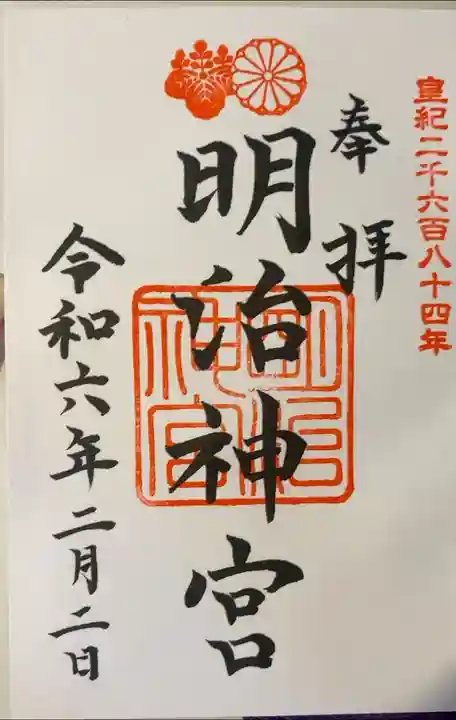 皇紀二千六百八十四年
奉拝
明治神宮
明治神宮
令和六年二月二日